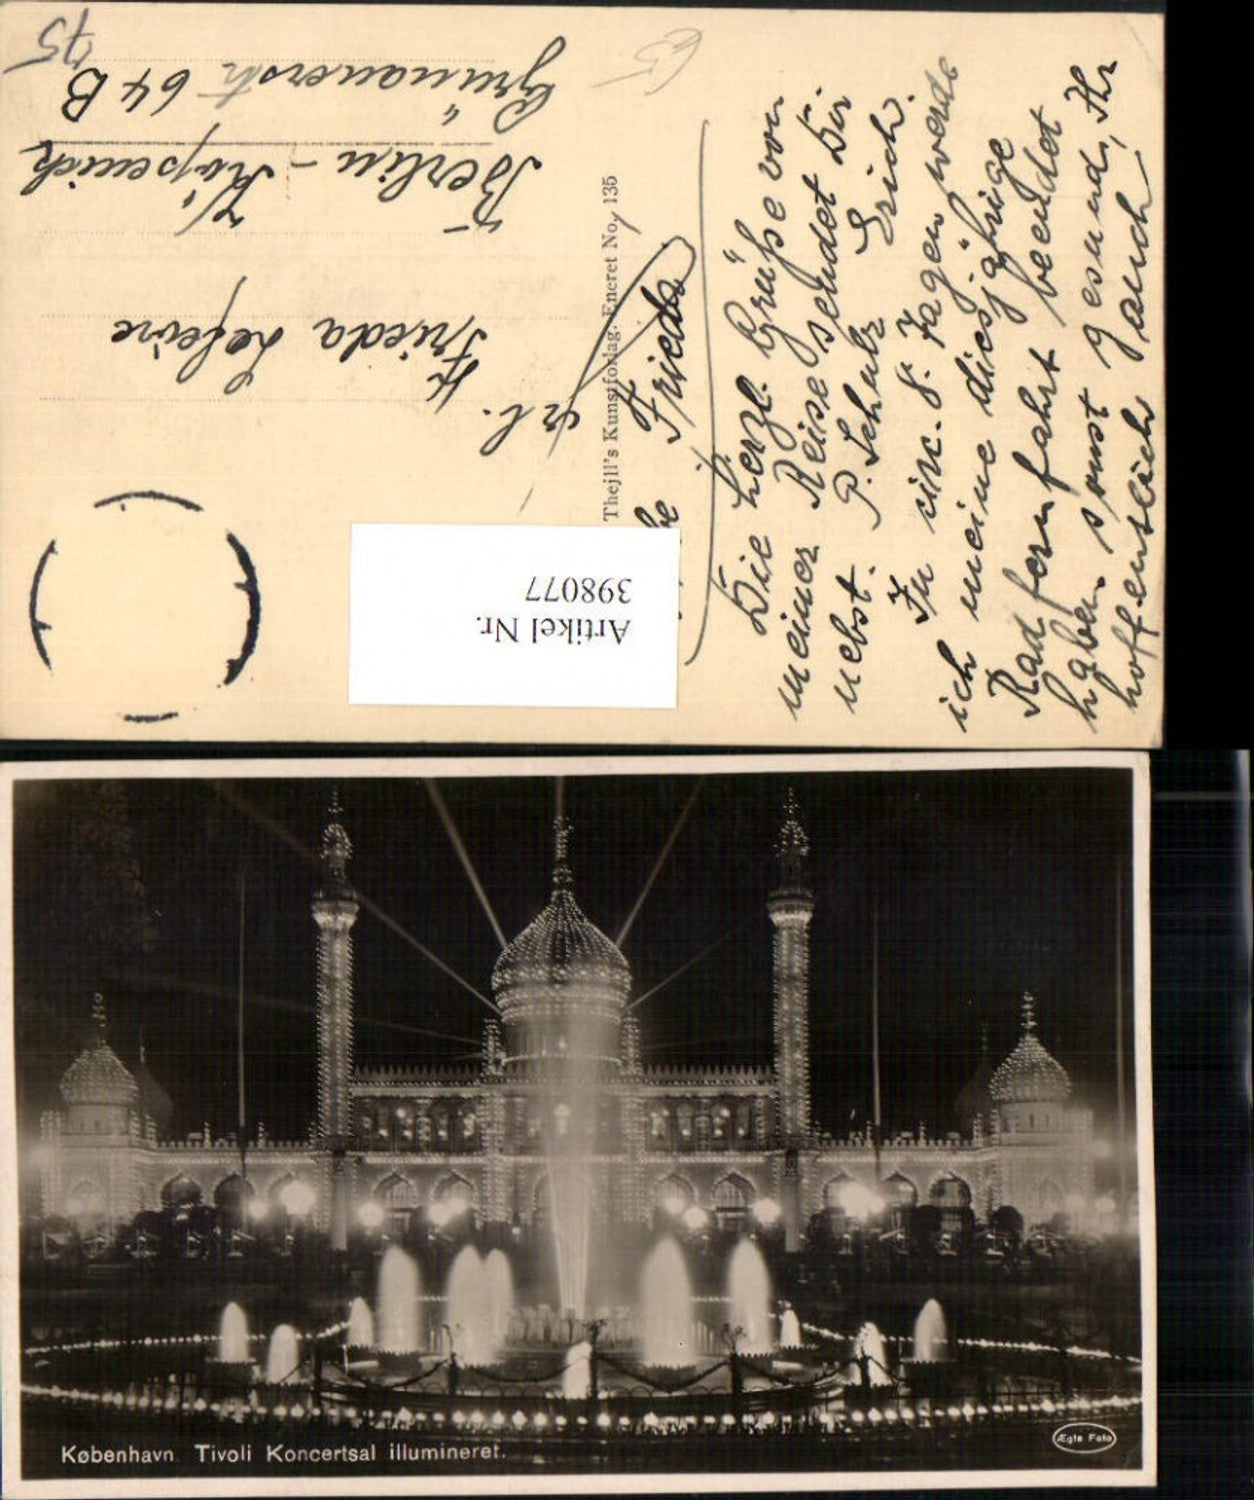 Liebe Frieda
Die herzl. Grüße von
meiner Reise sendet Dir
nebst. P. Schulz Erich.
In circ. 8. Tagen werde
ich meine diesjährige
Rad fern fahrt beendet
haben sonst gesund, Ihr
hoffentlich auch
Thejll's Kunstforlag. Eneret No, 135
Frl.
Frieda Lefevre
Berlin - Köpenick
Grünauerstr 64 B
75
Artikel Nr.
398077
København Tivoli Koncertsal illumineret.
Ægte Foto